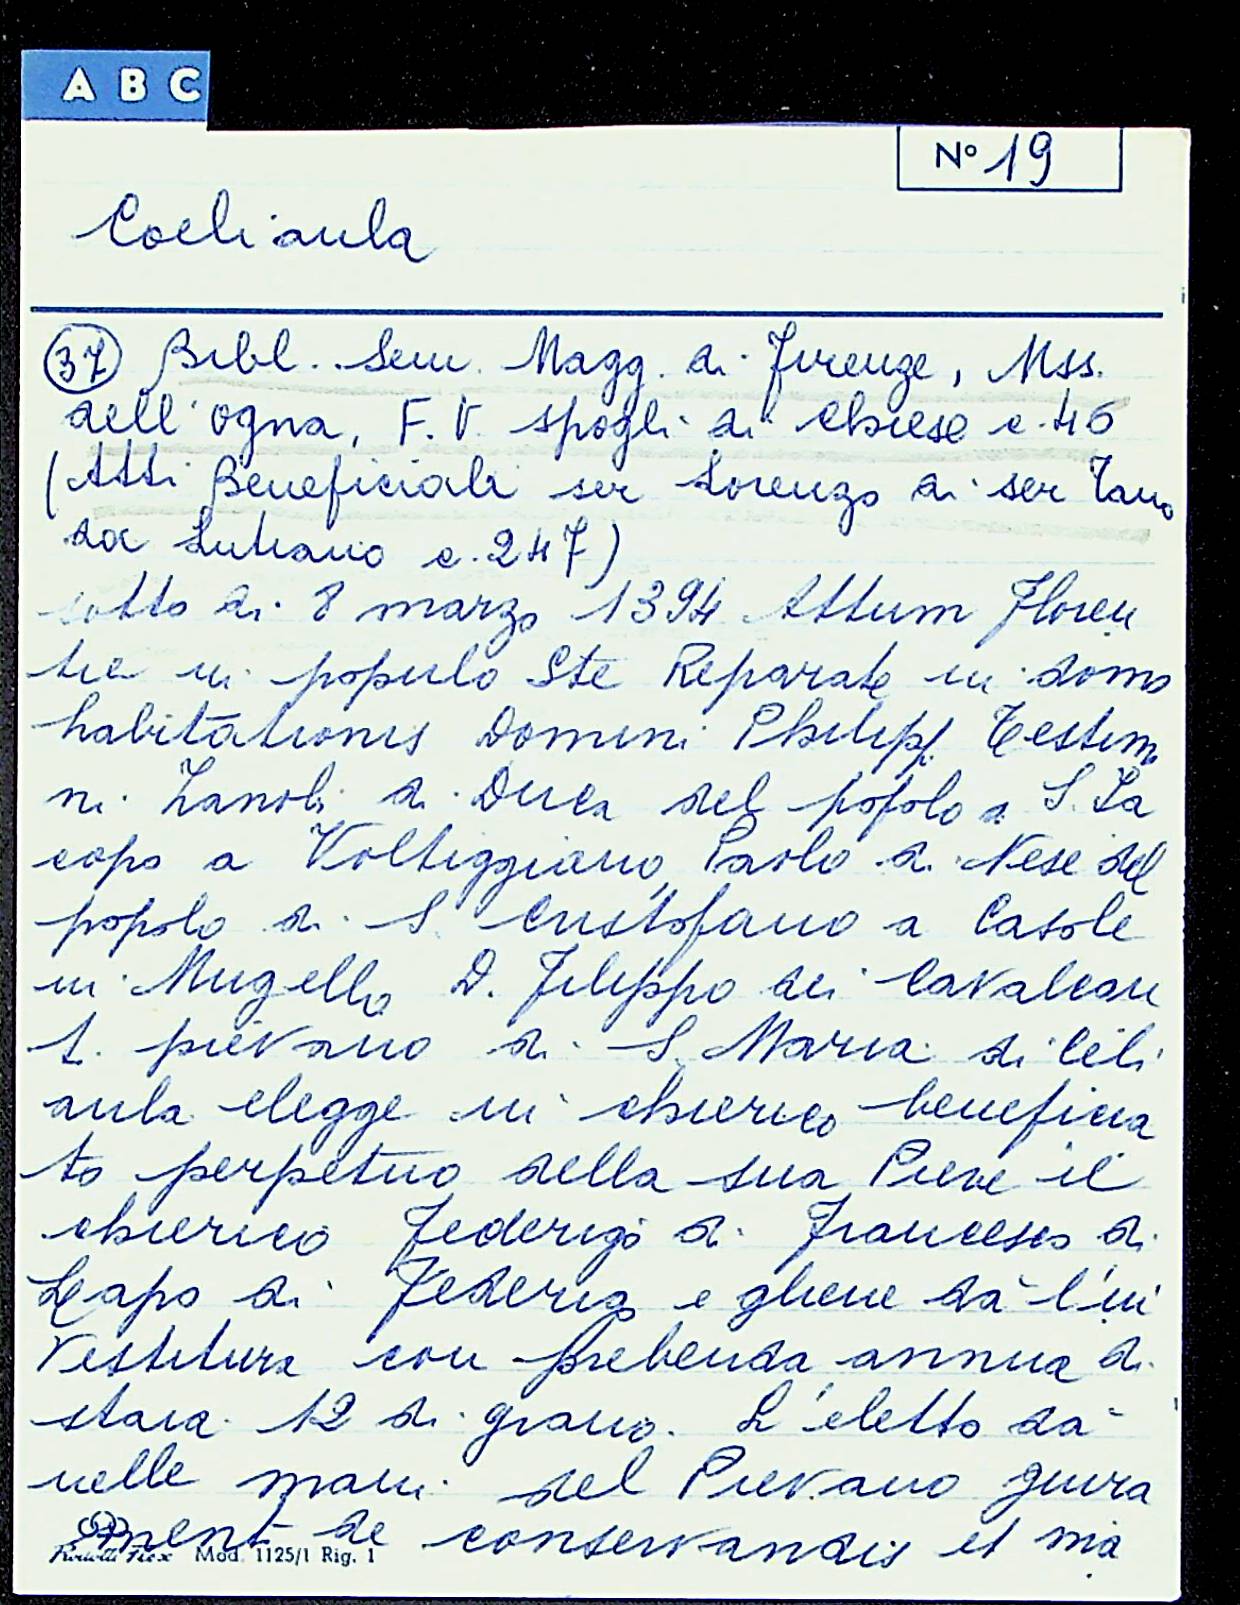 A B C
N° 19
Coeli aula
(37) Bibl. Sem. Magg. di Firenze, Mss.
dell'ogna, F. V. spogli di chiese c. 46
(Atti Beneficiali ser Lorenzo di ser Tano
da Lutiano c. 247)
sotto di 8 marzo 1394 Attum Floren
tie in populo Ste Reparate in domo
habitationis Domini Philippi Testim
ni Zanobi di Duca del popolo a S. Ja
copo a Voltiggiano, Paolo di Nese del
popolo di S. Cristofano a Casole
in Mugello D. Filippo dei Cavalcan
ti pievano di S. Maria di Celi
aula elegge in chierico beneficia
to perpetuo della sua Pieve il
chierico Federigo di Francesco di
Lapo di Federigo e gliene dà l'in
vestitura con prebenda annua di
staia 12 di grano. L'eletto dà
nelle mani del Pievano giura
ment de conservandis et ma
Mod. 1125/1 Rig. 1